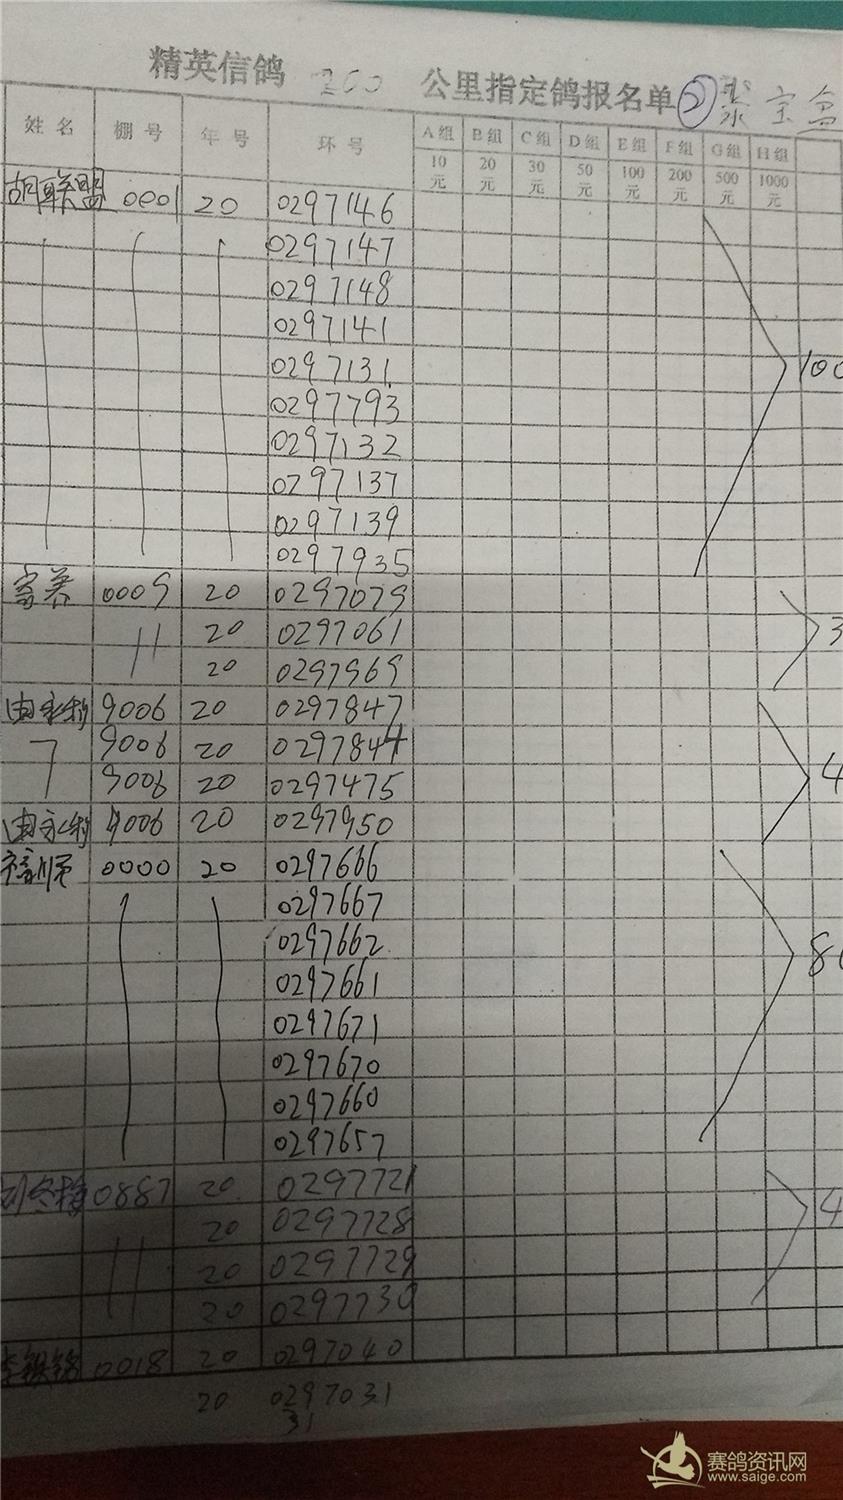 精英信鸽 200 公里指定鸽报名单 ② 聚宝盆
姓名 棚号 年号 环号 A组 B组 C组 D组 E组 F组 G组 H组
10元 20元 30元 50元 100元 200元 500元 1000元
胡联盟 0001 20 0297146
0297147
0297148
0297141
0297131 100
0297793
0297132
0297137
0297139
0297935
寄养 0009 20 0297079
20 0297061 3
20 0297969
由永利 9006 20 0297847
9006 20 0297844
9006 20 0297475 4
由永利 9006 20 0297950
福顺 0000 20 0297666
0297667
0297662
0297661
0297671
0297670
0297660
0297657
0887 20 0297721
20 0297728 4
20 0297729
20 0297730
0018 20 0297040
20 0297031
31
赛鸽资讯网
www.saige.com